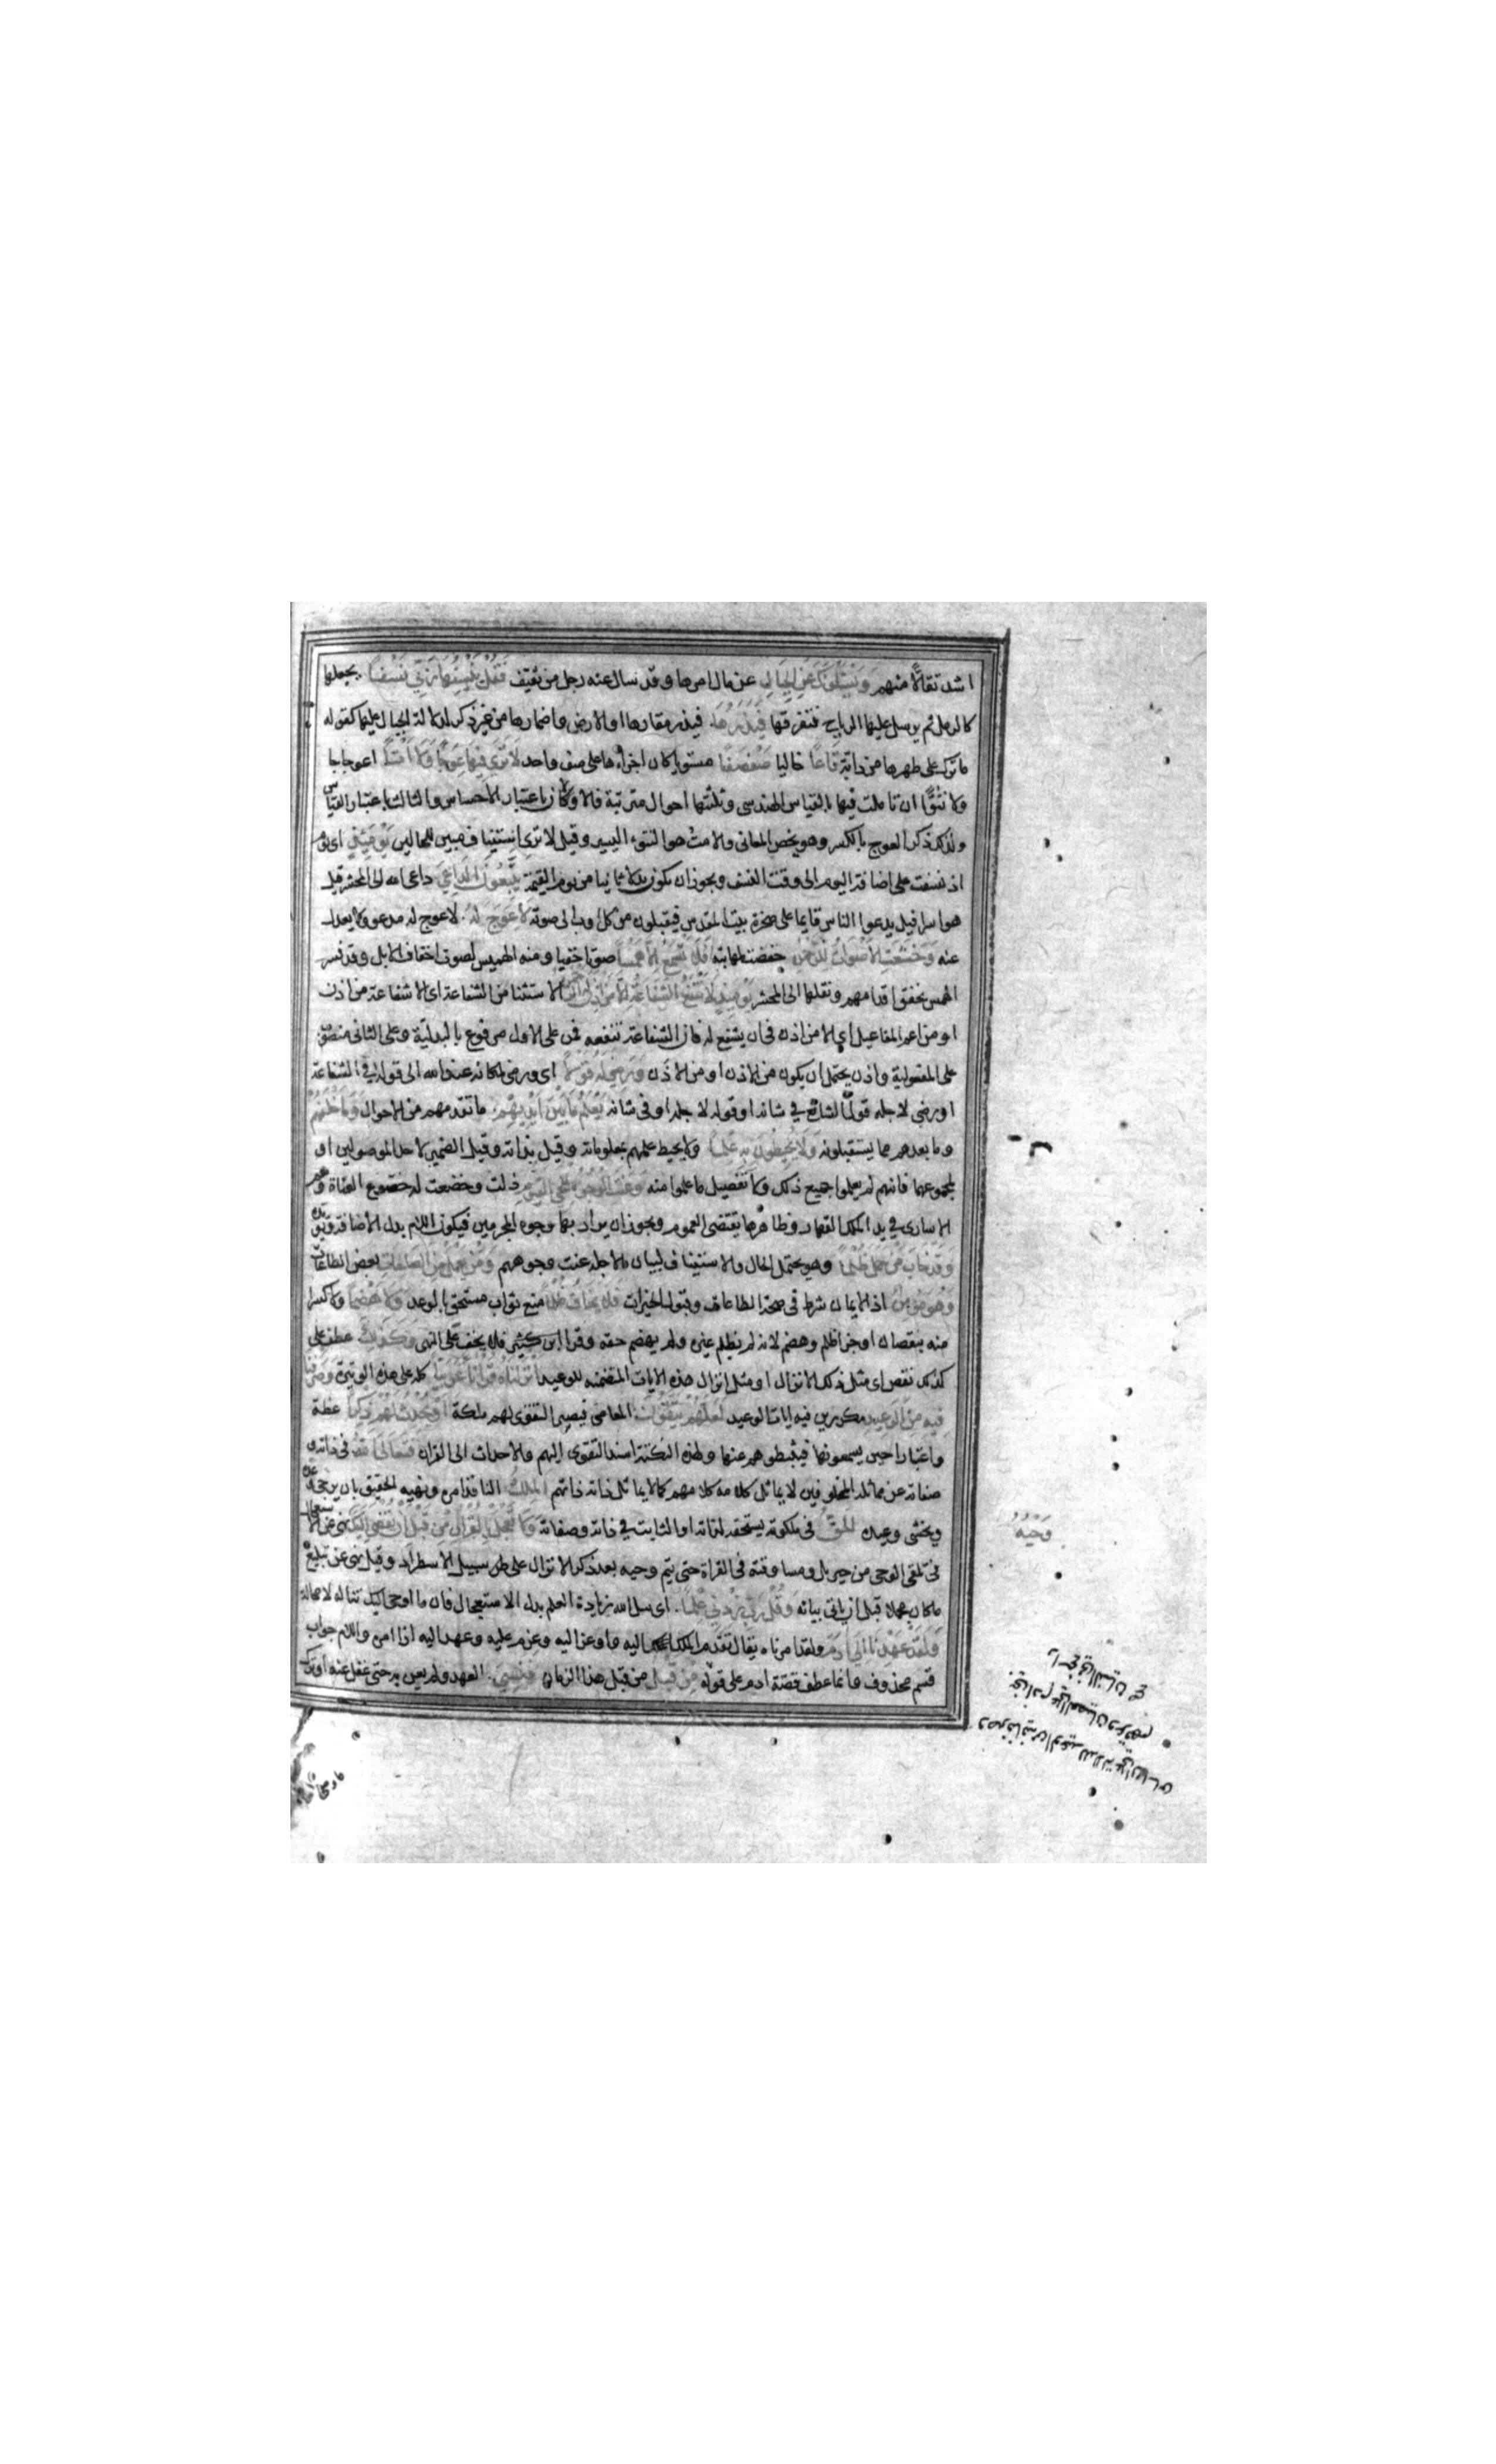 اشد تقالا منهم ويسئلونك عن الجبال عن مال امرها وقد سال عنه رجل من ثقيف فقل ينسفها ربي نسفا يجعلها
كالرمل ثم يرسل عليها الرياح فتفرقها فيذرها فيذر مقارها او الارض واضمارها من غير ذكر لدلالة الجبال عليها كقوله
ما ترك على ظهرها من دابة قاعا خاليا صفصفا مستويا كان اجزاءها على صف واحد لا ترى فيها عوجا ولا امتا اعوجاجا
ولا نتوّا ان تاملت فيها بالقياس الهندسى وثلثتها احوال مترتبة فالاولان باعتبار الاحساس والثالث باعتبار القياس
ولذلك ذكر العوج بالكسر وهو يخص المعانى والامت هو النتوء اليسير وقيل لا ترى استيناف مبين للحالين يومئذ اى يوم
اذ نسفت على اضافة اليوم الى وقت النسف ويجوز ان يكون بدلا ثانيا من يوم القيمة يتبعون الداعي داعى الله الى المحشر قيل
هو اسرافيل يدعوا الناس قايما على صخرة بيت المقدس فيقبلون من كل اوب الى صوته لا عوج له لا عوج له مدعو ولا يعدل
عنه وخشعت الاصوات للرحمن خفضت لمهابته فلا تسمع الا همسا صوتا خفيا ومنه الهميس لصوت اخفاف الابل وقد فسر
الهمس بخفق اقدامهم ونقلها الى المحشر يومئذ لا تنفع الشفاعة الا من اذن له الرحمن الاستثنا من الشفاعة اى الا شفاعة من اذن
او من اعم المفاعيل اى الا من اذن فى ان يشفع له فان الشفاعة تنفعه فمن على الاول مرفوع بالبدلية وعلى الثانى منصوب
على المفعولية واذن يحتمل ان يكون من الاذن او من الاذَن ورضي له قولا اى ورضى لمكانه عند الله الى قوله فى الشفاعة
او رضى لاجله قول الشافع في شانه او قوله لاجله او فى شانه يعلم ما بين ايديهم ما تقدمهم من الاحوال وما خلفهم
وما بعدهم مما يستقبلونه ولا يحيطون به علما ولا يحيط علمهم بمعلوماته وقيل بذاته وقيل الضمير لاحد الموصولين او
لمجموعهما فانهم لم يعلموا جميع ذلك ولا تفصيل ما علموا منه وعنت الوجوه للحي القيوم ذلت وخضعت له خضوع العناة وهم
الاسارى في يد الملك القهار وظاهرها يقتضى العموم ويجوز ان يراد بها وجوه المجرمين فيكون اللام بدل الاضافة ويؤيده
وقد خاب من حمل ظلما وهو يحتمل الحال والاستيناف لبيان ما لاجله عنت وجوههم ومن يعمل من الصالحات بعض الطاعات
وهو مؤمن اذ الايمان شرط فى صحة الطاعات وقبول الخيرات فلا يخاف ظلما منع ثواب مستحق بالوعد ولا هضما ولا كسرا
منه بنقصان او جزا ظلم وهضم لانه لم يظلم غيره ولم يهضم حقه وقرا ابن كثير فلا يخف على النهى وكذلك عطف على
كذلك نقص اى مثل ذلك الانزال او مثل انزال هذه الايات المتضمنه للوعيد انزلناه قرانا عربيا كله على هذه الوتيرة وصرفنا
فيه من الوعيد مكررين فيه ايات الوعيد لعلهم يتقون المعاصى فيصير التقوى لهم ملكة او يحدث لهم ذكرا عظة
واعتبارا حين يسمعونها فيثبطهم عنها ولهذه النكتة اسند التقوى اليهم والاحداث الى القران فتعالى الله فى ذاته و
صفاته عن مماثلة المخلوقين لا يماثل كلامه كلامهم كما لا يماثل ذاته ذاتهم الملك النافذ امره ونهيه الحقيق بان يرجى وعده
ويخشى وعيده الحق فى ملكوته يستحقه لذاته او الثابت في ذاته وصفاته ولا تعجل بالقران من قبل ان يقضى اليك نهى عن الاستعجال
وحيه
فى تلقى الوحى من جبريل ومساوقته فى القراة حتى يتم وحيه بعد ذكر الانزال على سبيل الاسطراد وقيل نهى عن تبليغ
ما كان مجملا قبل ان ياتى بيانه وقل رب زدني علما اى سل الله زيادة العلم بدل الاستعجال فان ما اوحى اليك تناله لا محالة
ولقد عهدنا الى ادم ولقد امرناه يقال تقدم الملك اليه واوعز اليه وعزم عليه وعهد اليه اذا امره واللام جواب
قسم محذوف وانما عطف قصة ادم على قوله من قبل من قبل هذا الزمان فنسي العهد ولم يعن به حتى غفل عنه او ترك
وصرفنا فيه من الوعيد للدلالة على ان اساس
بنى ادم على العصيان وعرقهم
راسخ في النسيان صح